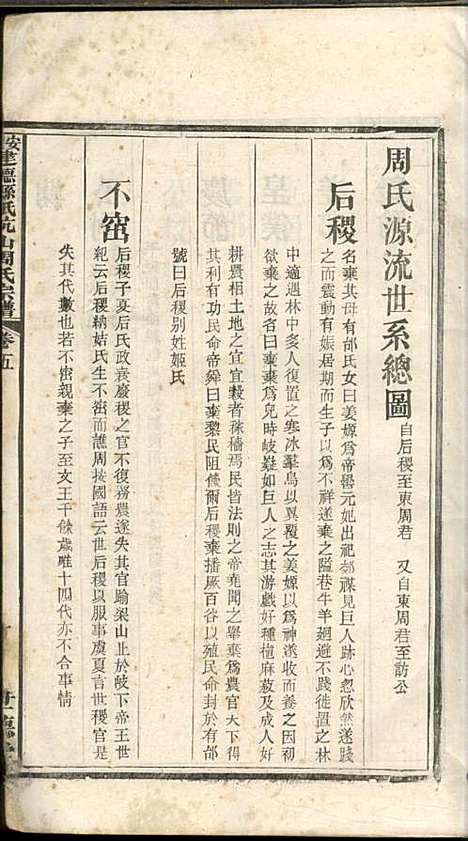 周氏源流世系總圖 自后稷至東周君 又自東周君至訪公
后稷 名棄其母有邰氏女曰姜嫄爲帝嚳元妃出祀郊禖見巨人跡心忽欣然遂踐
之而震動有娠居期而生子以爲不祥遂棄之隘巷牛羊廻避不踐徙置之林
中適遇林中多人復置之寒冰羣鳥以其翼覆之姜嫄以爲神遂收而養之因初
欲棄之故名曰棄棄爲兒時岐嶷如巨人之志其游戲好種植麻菽及成人好
耕農相土地之宜宜穀者稼穡焉民皆法則之帝堯聞之舉棄爲農官天下得
其利有功民命帝舜曰棄黎民阻饑爾后稷棄播厥百谷以殖民命封於有邰
號曰后稷别姓姬氏
不窋 后稷子夏后氏政衰廢稷之官不復務農遂失其官踰梁山止於岐下帝王世
紀云后稷納姞氏生不窋而譙周按國語云世后稷以服事虞夏言世稷官是
失其代數也若不窋親棄之子至文王千餘歲唯十四代亦不合事情
建德縣 山周氏宗譜 卷五